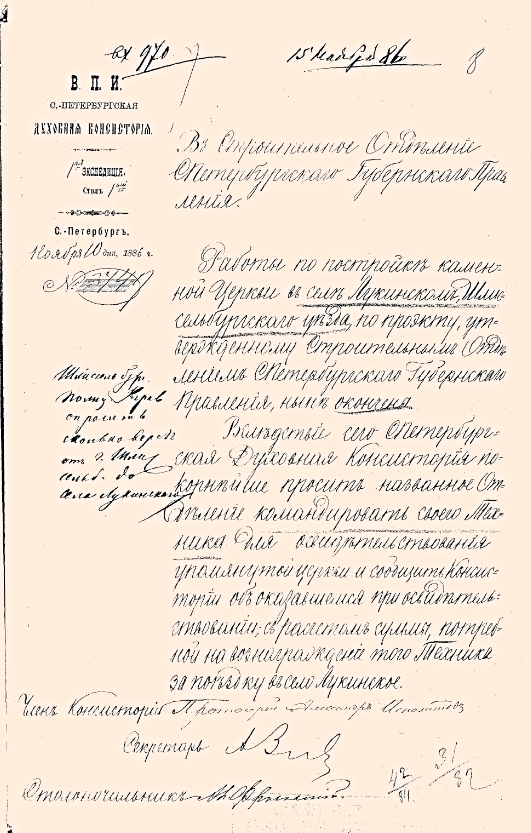 вх 970
15 Ноября 86
8
В. П. И.
С.-ПЕТЕРБУРГСКАЯ
ДУХОВНАЯ КОНСИСТОРІЯ.
1ая ЭКСПЕДИЦІЯ.
Столъ 1ый
С.-Петербургъ.
Ноября 10 дня, 1886 г.
№
Въ Строительное Отдѣленіе
СПетербургскаго Губернскаго Прав
ленія.
Работы по постройкѣ камен-
ной Церкви въ селѣ Лукинскомъ, Шлис-
сельбургскаго уѣзда, по проэкту, ут-
вержденному Строительнымъ Отдѣ
леніемъ СПетербургскаго Губернскаго
Правленія, нынѣ окончена.
Вслѣдствіе сего СПетербург-
ская Духовная Консисторія по-
корнѣйше проситъ названное От-
дѣленіе командировать своего Тех-
ника для освидѣтельствованія
упомянутой церкви и сообщить Консис-
торіи объ оказавшемся при освидѣтель-
ствованіи, съ расчетомъ суммы, потреб-
ной на вознагражденіе того Техника
за поѣздку въ село Лукинское.
спросить
сколько верстъ
отъ г. Шлис
сельб. до
села Лукинскаго
Членъ Консисторіи Протоіерей Александръ
Секретарь
Столоначальникъ
42/84
31/82